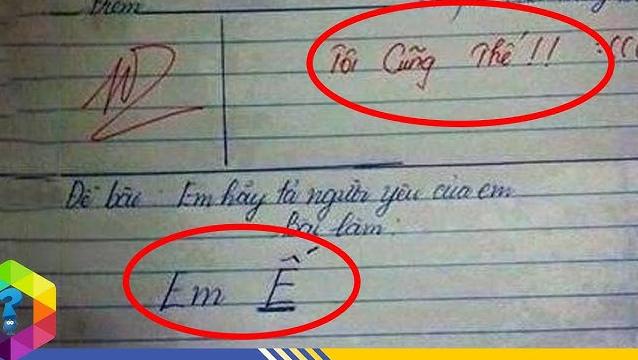 Điểm
10
Tôi Cũng Thế!! :(((
Đề bài: Em hãy tả người yêu của em
Bài làm:
Em Ế